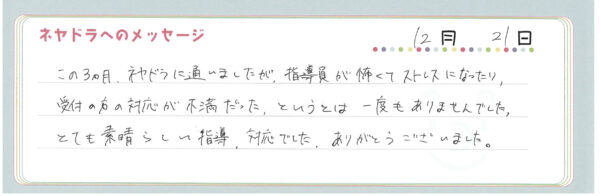 ネヤドラへのメッセージ 12月 21日
この3ヵ月、ネヤドラに通いましたが、指導員が怖くてストレスになったり、
受付の方の対応が不満だった、というとは一度もありませんでした。
とても素晴らしい指導、対応でした。ありがとうございました。